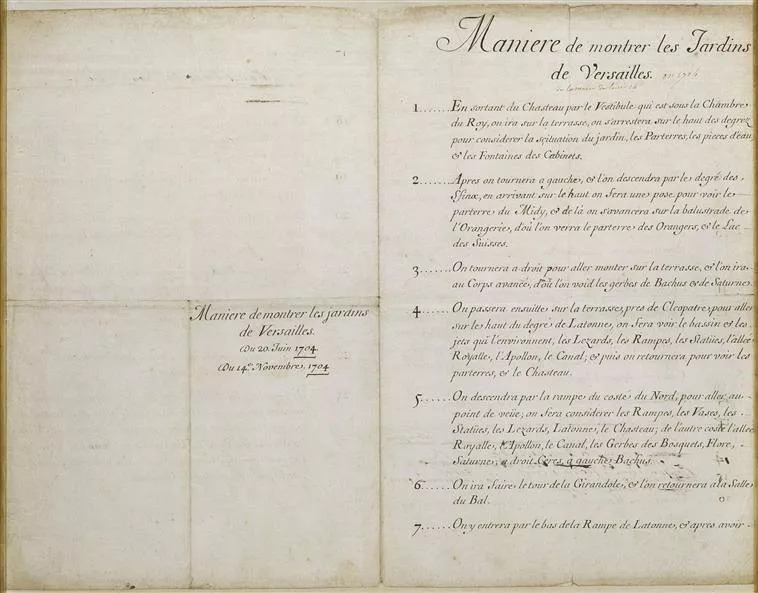 Maniere de montrer les jardins
de Versailles.
Du 20. Juin 1704.
Du 14.e Novembre, 1704
Maniere de montrer les Jardins
de Versailles. en 1704
1......En sortant du Chasteau par le Vestibule qui est sous la Chambre
du Roy, on ira sur la terrasse, on s'arrestera sur le haut des degrez
pour considerer la scituation du jardin, les Parterres, les pieces d'eau,
& les Fontaines des Cabinets.
2......Apres on tournera a gauche, & l'on descendra par le degré des
Sfinx, en arrivant sur le haut on fera une pose pour voir le
parterre du Midy, & de là on s'avancera sur la balustrade de
l'Orangerie, d'où l'on verra le parterre des Orangers, & le Lac
des Suisses.
3......On tournera a droit pour aller monter sur la terrasse, & l'on ira
au Corps avancé, d'où l'on void les gerbes de Bachus & de Saturne.
4......On passera ensuitte sur la terrasse, pres de Cleopatre, pour aller
sur le haut du degre de Latonne, on fera voir le bassin & les
jets qui l'environnent, les Lezards, les Rampes, les Statües, l'allée
Royalle, l'Apollon, le Canal, & puis on retournera pour voir les
parterres, & le Chasteau.
5......On descendra par la rampe du costé du Nord, pour aller au
point de veüe, on fera considerer les Rampes, les Vases, les
Statües, les Lezards, Latonne, le Chasteau; de l'autre costé l'allée
Royalle, l'Apollon, le Canal, les Gerbes des Bosquets, Flore,
Saturne, a droit Ceres, à gauche Bachus.
6......On ira faire le tour de la Girandole, & l'on retournera a la Salle
du Bal.
7......On y entrera par le bas de la Rampe de Latonne, & apres avoir